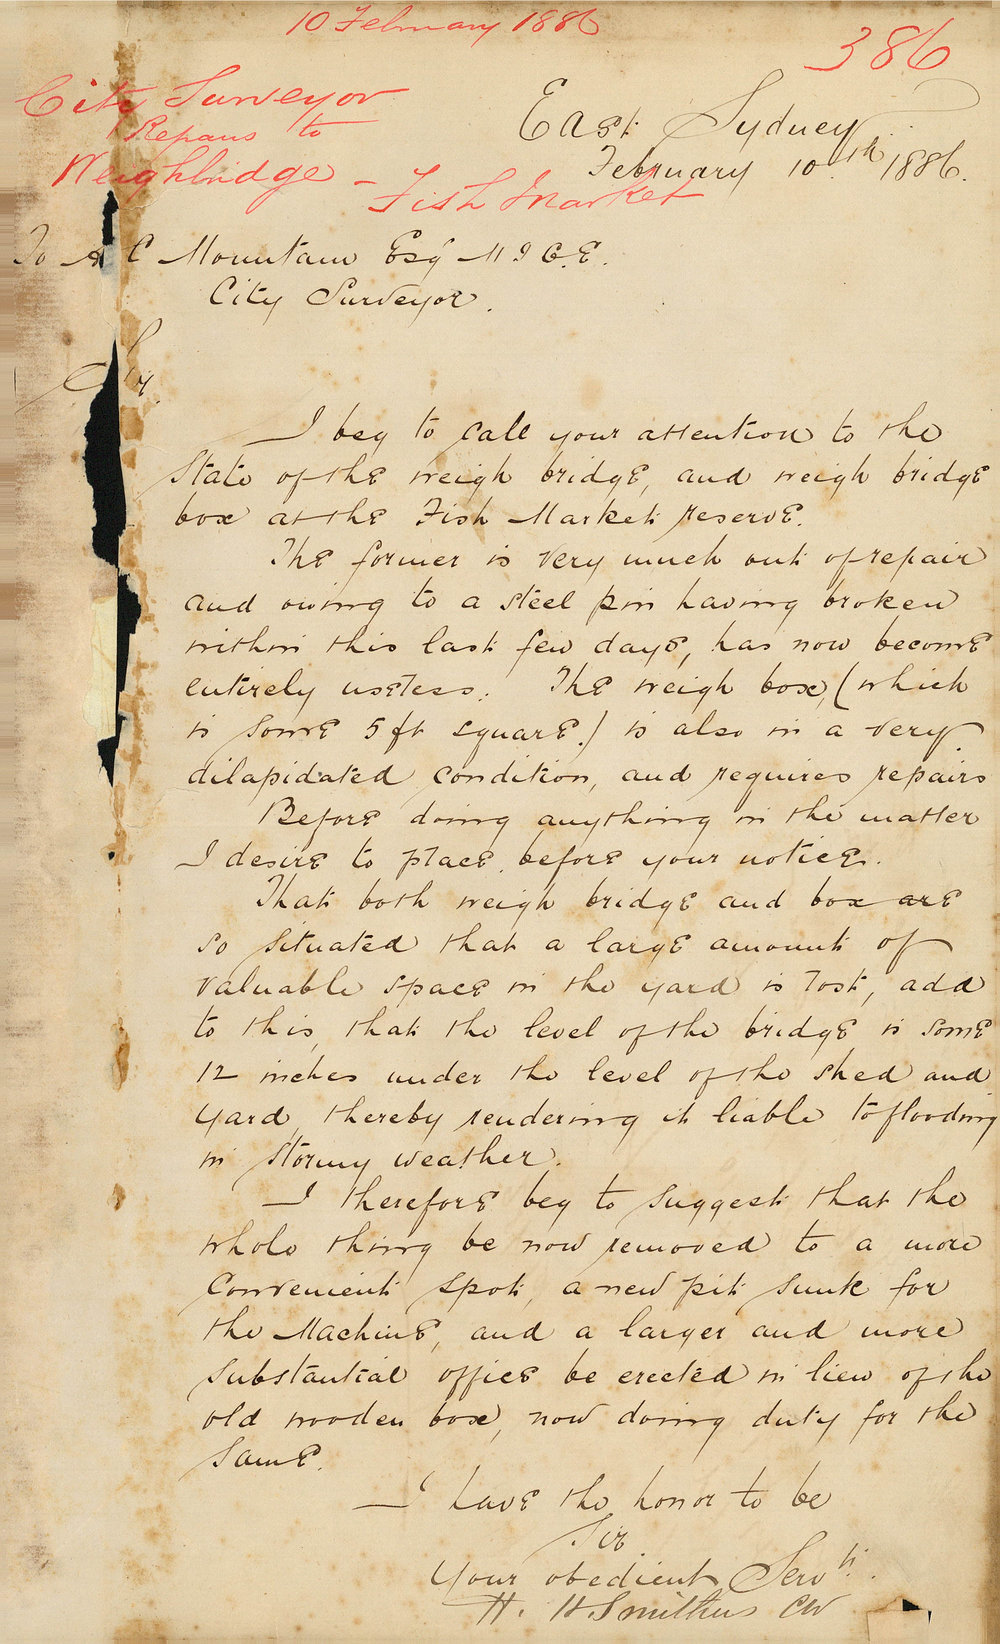 10 February 1886
386
City Surveyor
Repairs to
Weighbridge – Fish Market
East Sydney
February 10th 1886.
To A C Mountain Esq M I C.E.
City Surveyor.
Sir
I beg to call your attention to the
State of the weigh bridge, and weigh bridge
box at the Fish Market reserve.
The former is very much out of repair
and owing to a steel pin having broken
within this last few days, has now become
entirely useless. The weigh box, (which
is some 5 ft square.) is also in a very
dilapidated condition, and requires repairs
Before doing anything in the matter
I desire to place before your notice.
That both weigh bridge and box are
so situated that a large amount of
valuable space in the yard is lost, add
to this, that the level of the bridge is some
12 inches under the level of the shed and
yard, thereby rendering it liable to flooding
in stormy weather.
I therefore beg to suggest that the
whole thing be now removed to a more
Convenient spot, a new pit sunk for
the Machine, and a larger and more
substantial office be erected in lieu of the
old wooden box, now doing duty for the
same.
I have the honor to be
Sir
Your obedient Servt.
H. H Smithers CW